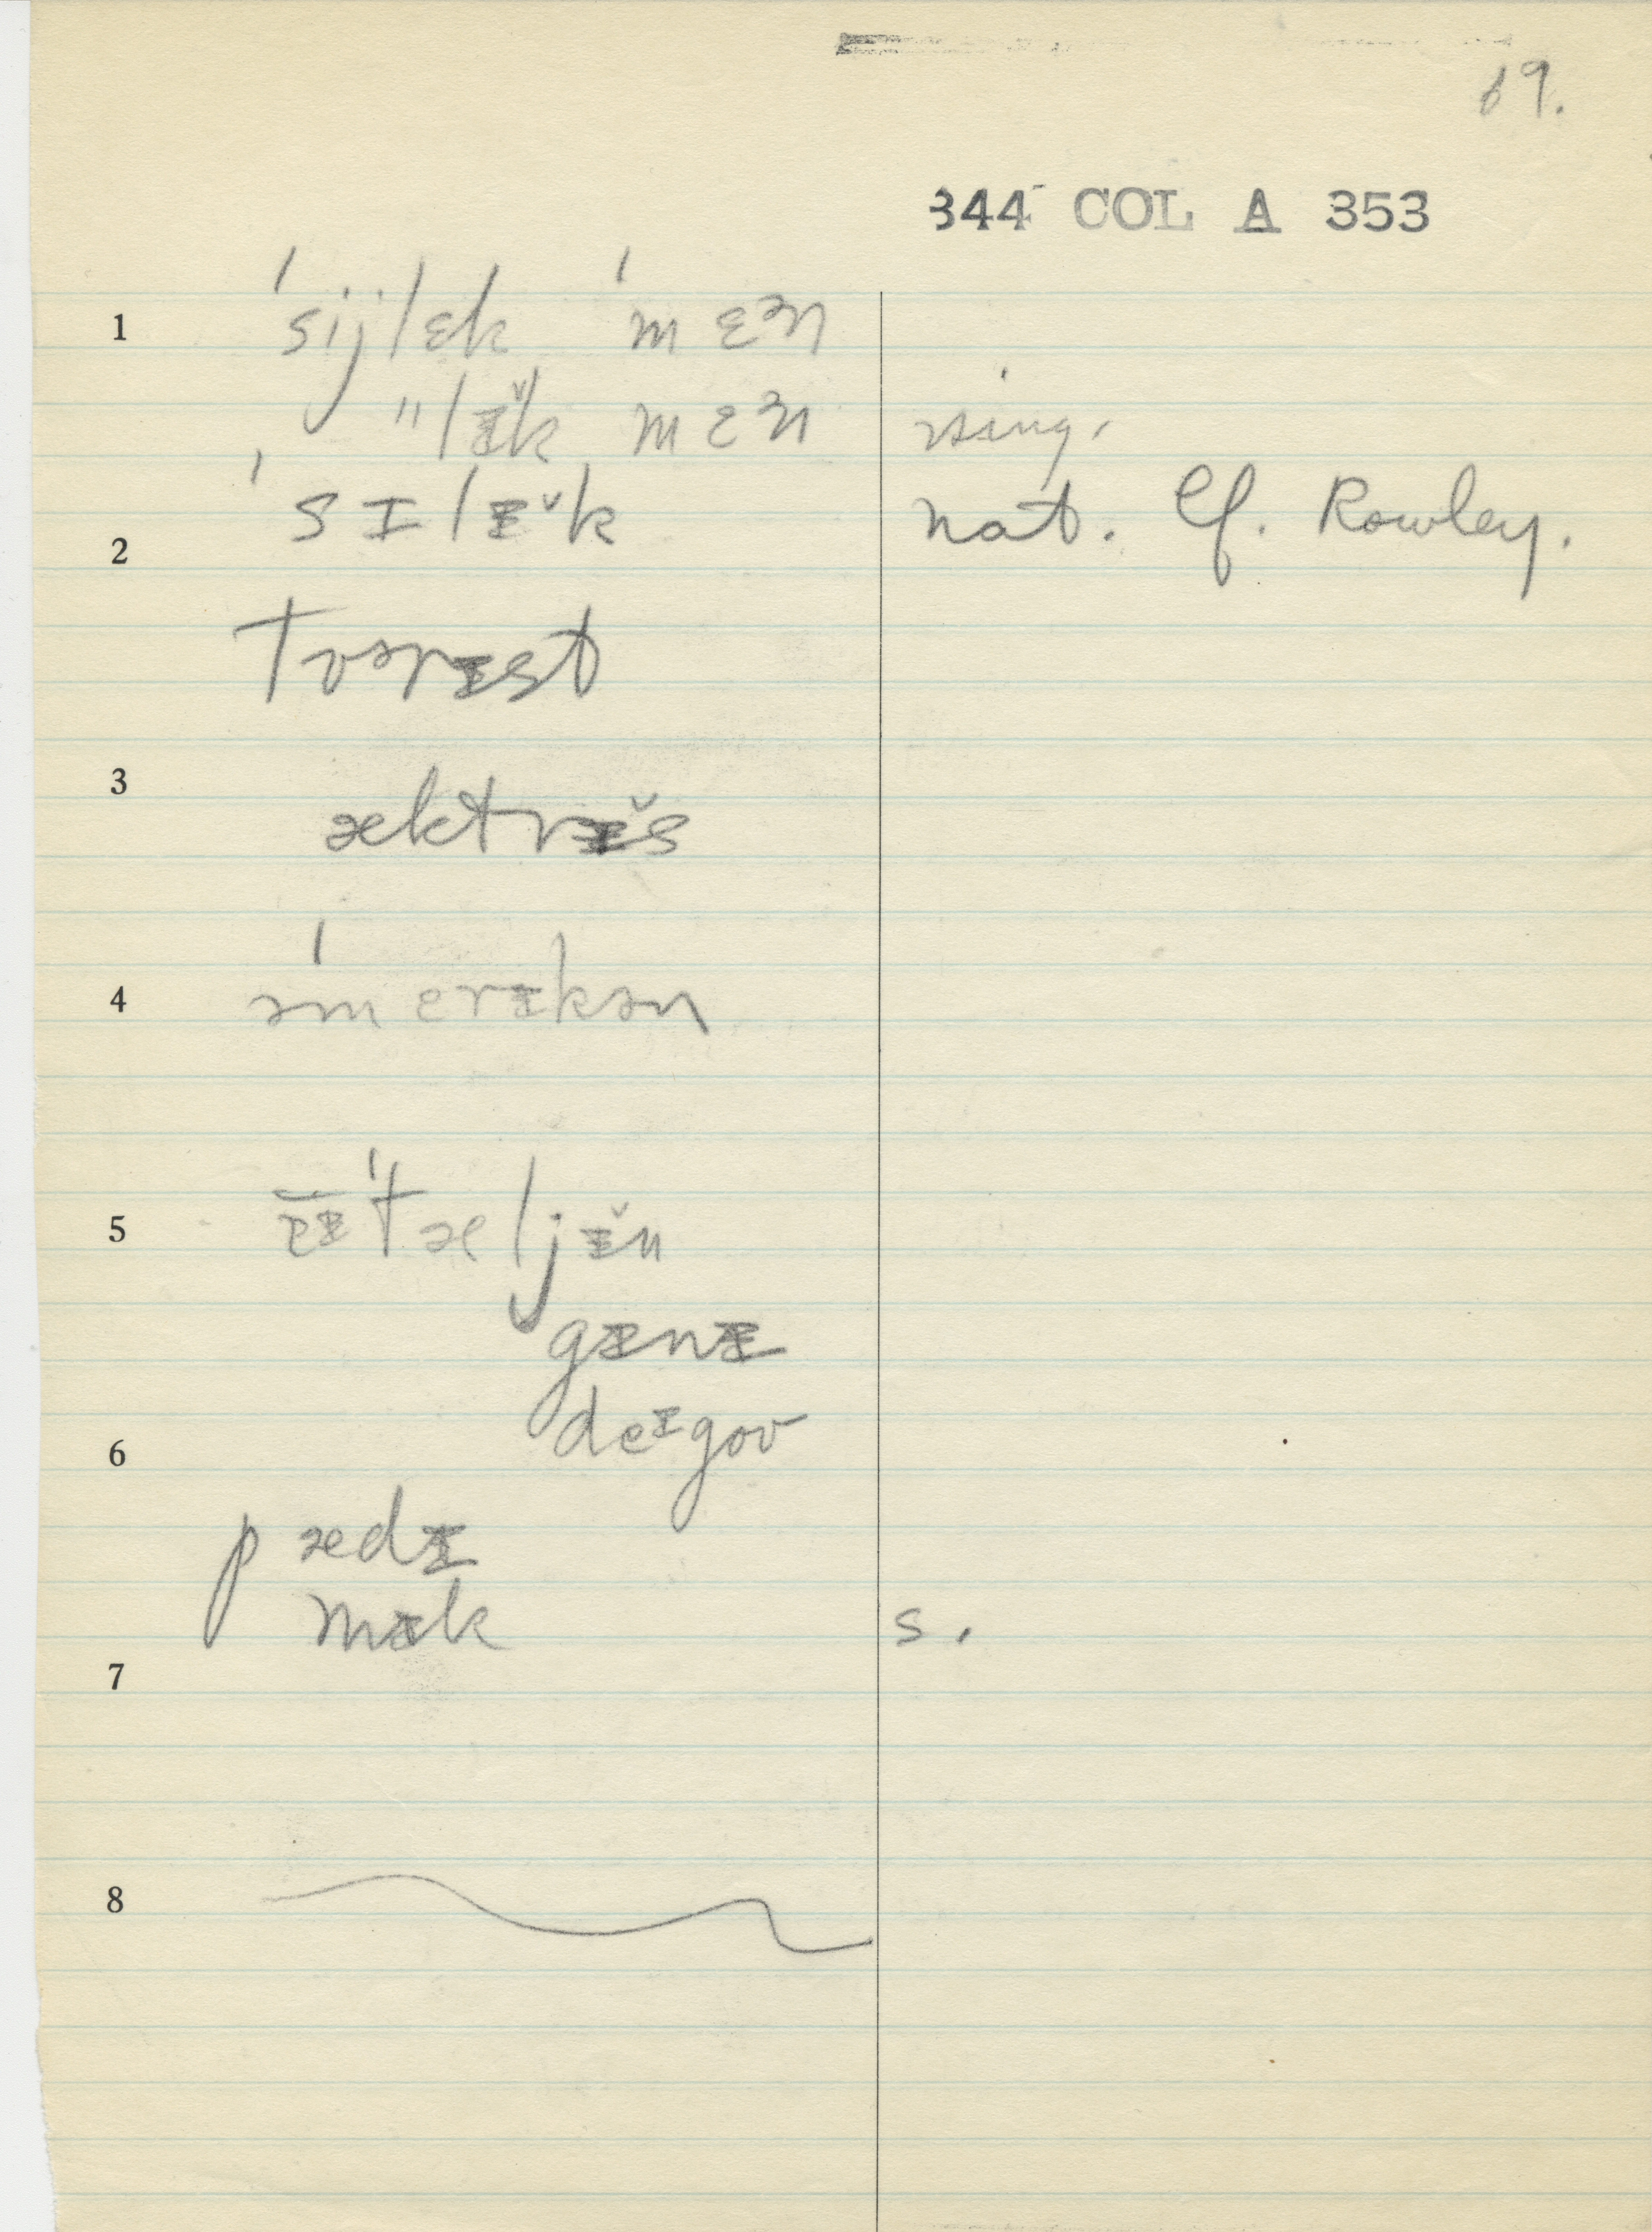 69.
344 COL A 353
1 ˈsijlɛk ˈmɛᵊn
"lᵻ̌k mɛᵊn sing.
ˈsɪlᵻ̌k nat. Cf. Rowley.
2
tɒərᵻst
3
æktrᵻ̌s
4 əˈmerᵻkən
5 ᵻˈtæljᵻ̌n
gᵻnᵻ
deᶦgoʊ
6
pædᵻ
mᵻk s.
7
8